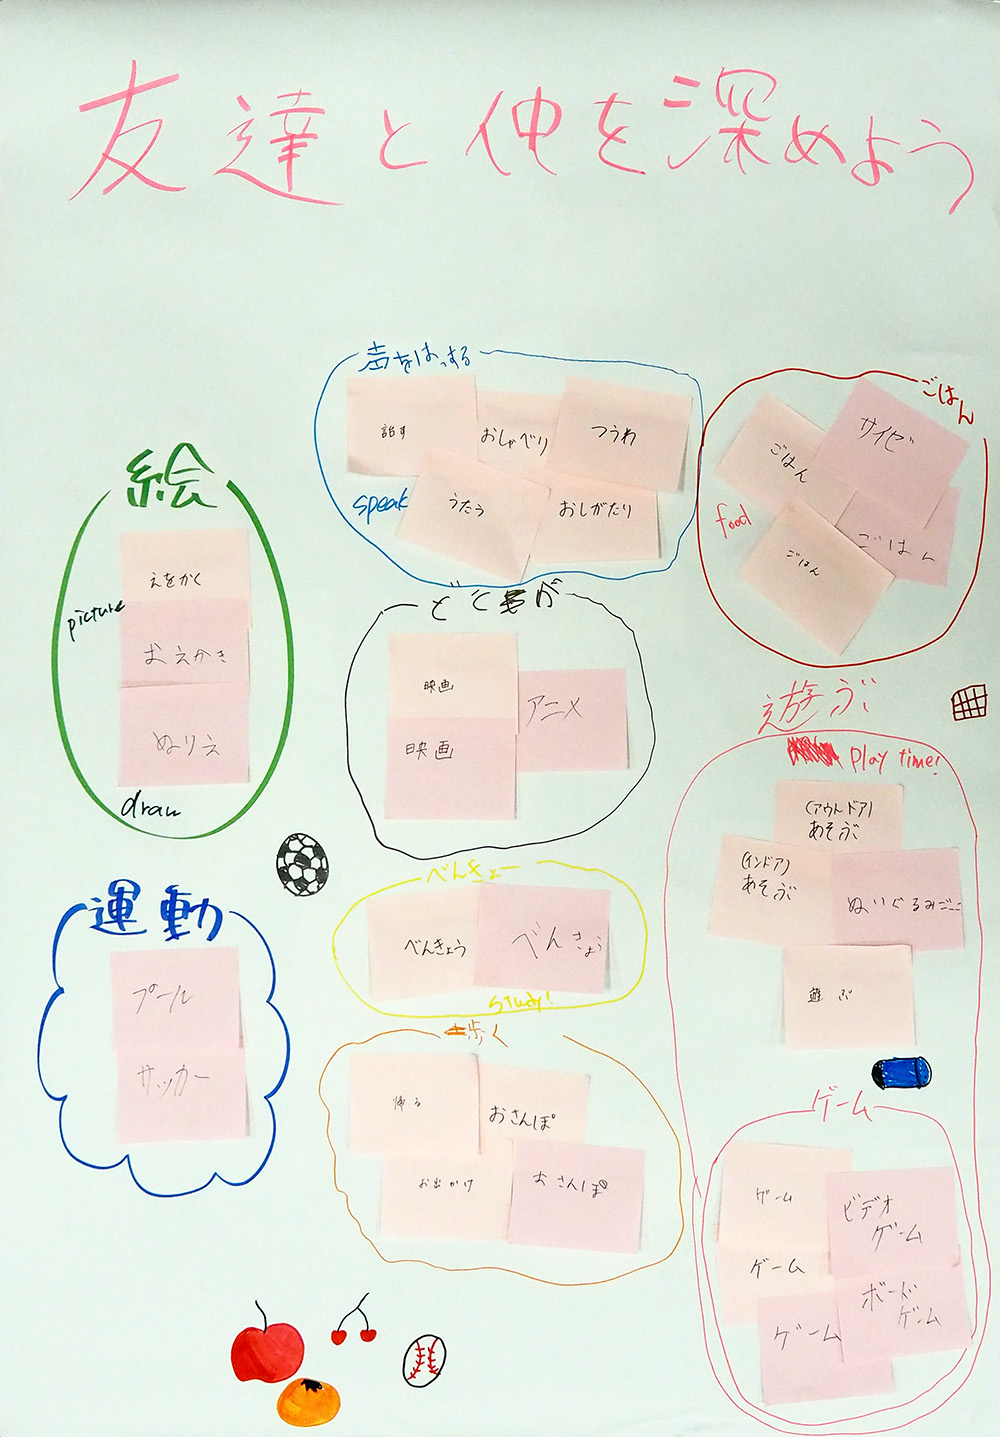 友達と仲を深めよう
声をはっする
話す
おしゃべり
つうわ
speak
うたう
おしがたり
ごはん
ごはん
サイゼ
food
ごはん
ごはん
絵
えをかく
picture
おえかき
ぬりえ
draw
映画
映画
アニメ
遊ぶ
play time!
(アウトドア)
あそぶ
(インドア)
あそぶ
ぬいぐるみごっこ
遊ぶ
べんきょー
べんきょう
べんきょう
study!
運動
プール
サッカー
歩く
帰る
おさんぽ
お出かけ
おさんぽ
ゲーム
ゲーム
ビデオ
ゲーム
ゲーム
ボード
ゲーム
ゲーム